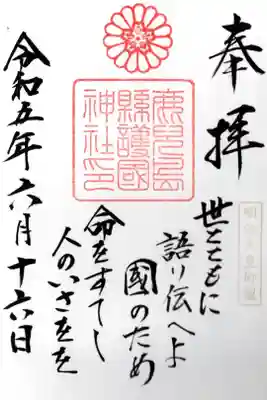 奉拝
明治天皇御製
世とともに
語り伝へよ
國のため
命をすてし
人のいさをを
鹿兒島
縣護國
神社印
令和五年六月十六日